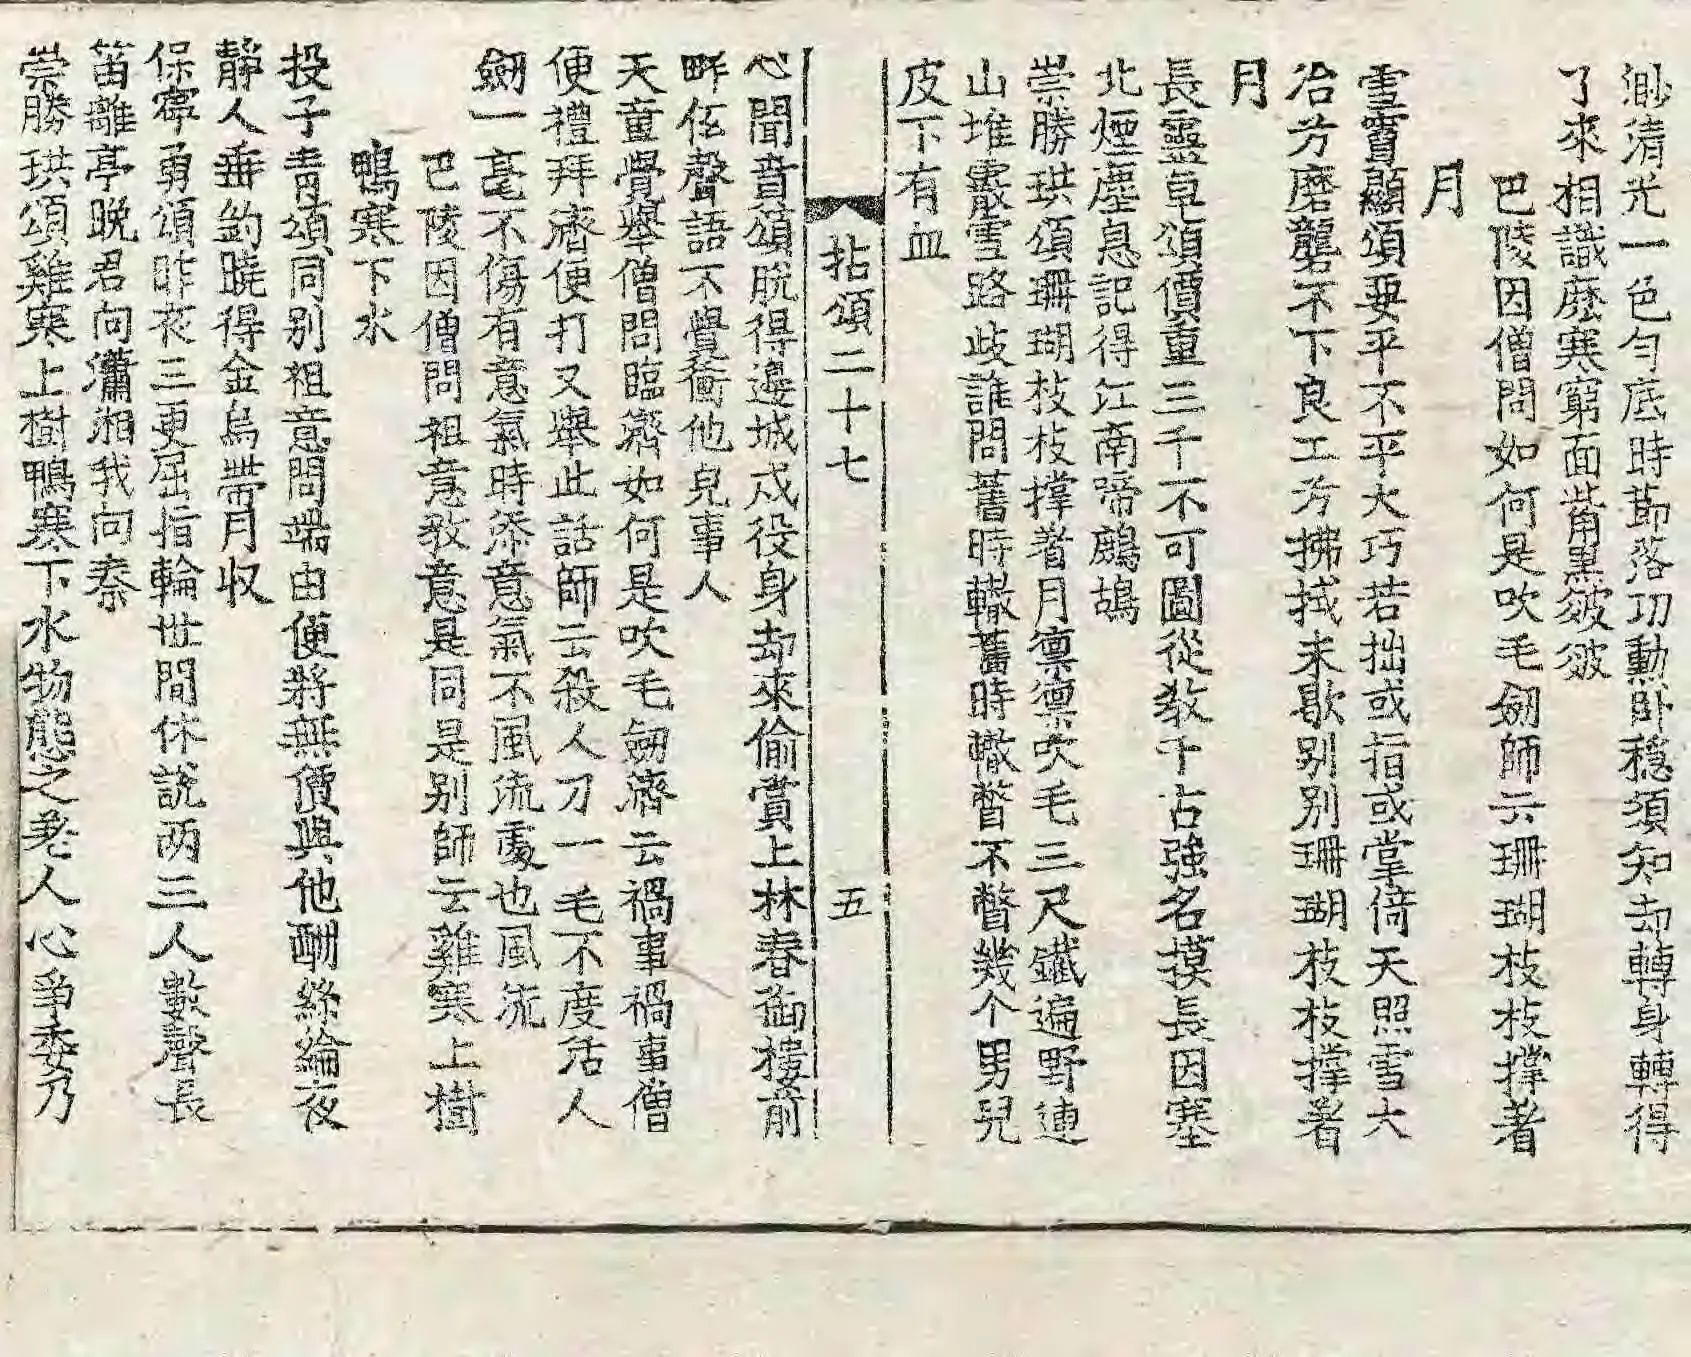 渺清光一色勻底時節落功勳卧穩須知却轉身轉得
了來相識麽寒窮面觜黑皴皴
巴陵因僧問如何是吹毛劒師云珊瑚枝枝撑著
月
雪竇顯頌要平不平大巧若拙或指或掌倚天照雪大
冶芳磨礱不下良工芳拂拭未歇别别珊瑚枝枝撑著
月
長靈卓頌價重三千不可圖從教千古強名摸長因塞
北煙塵息記得江南啼鷓鴣
崇勝珙頌珊瑚枝枝撑着月凛凛吹毛三尺鐵遍野連
山堆叢雪路歧誰問舊時轍舊時轍瞥不瞥幾个男兒
皮下有血
拈頌二十七 五
心聞賁頌脫得邊城戍役身却來偷賞上林春御樓前
畔伍聲語不覺衝他皃事人
天童覺擧僧問臨濟如何是吹毛劒濟云禍事禍事僧
便禮拜濟便打又擧此話師云殺人刀一毛不度活人
劒一毫不傷有意氣時添意氣不風流處也風流
巴陵因僧問祖意教意是同是别師云雞寒上樹
鴨寒下水
投子青頌同别祖意問端由便將無價與他酬絲綸夜
靜人垂釣曉得金烏帶月収
保寧勇頌昨夜三更屈指輪世間休說两三人數聲長
笛離亭晚君向瀟湘我向秦
崇勝珙頌雞寒上樹鴨寒下水物態之卷人心爭委乃